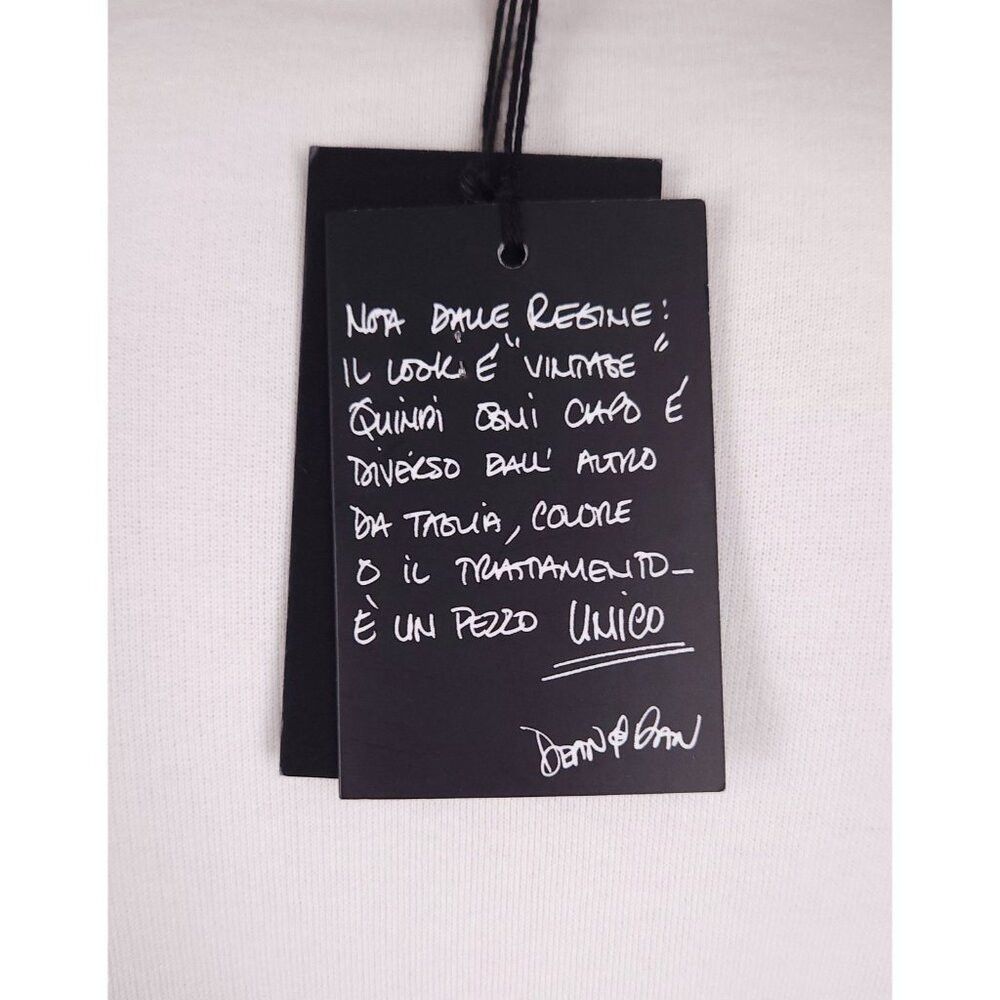 NOTA DALLE REGINE:
IL LOOK È "VINTAGE"
QUINDI OGNI CAPO È
DIVERSO DALL' ALTRO
DA TAGLIA, COLORE
O IL TRATTAMENTO_
È UN PEZZO UNICO
DEAN & DAN